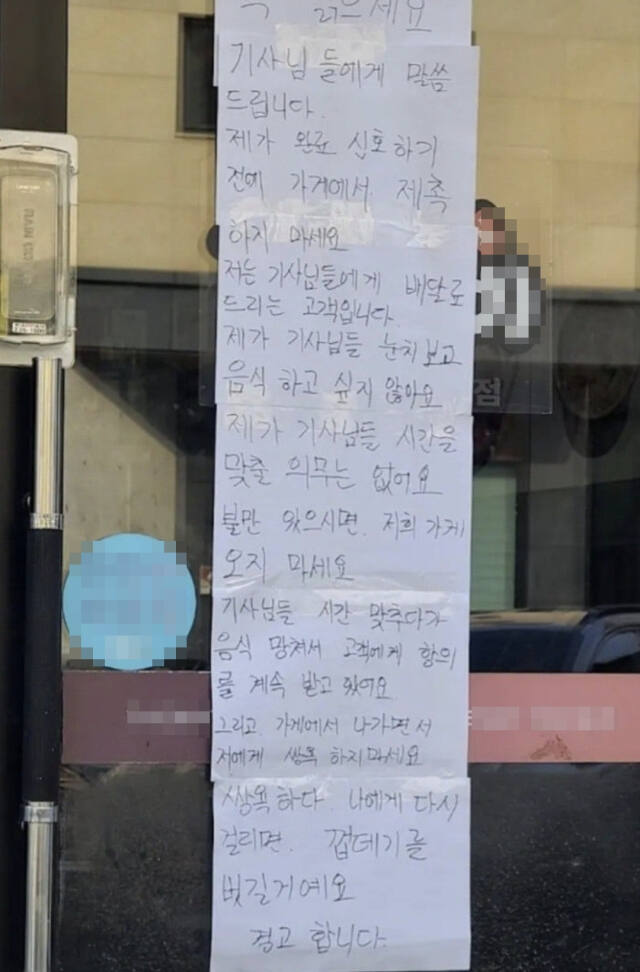 꼭 읽으세요
기사님 들에게 말씀
드립니다.
제가 완료 신호하기
전에 가게에서 제촉
하지 마세요
저는 기사님들에게 배달료
드리는 고객입니다.
제가 기사님들 눈치보고
음식 하고 싶지 않아요
제가 기사님들 시간을
맞출 의무는 없어요
불만 있으시면. 저희 가게
오지 마세요
기사님들 시간 맞추다가
음식 망쳐서 고객에게 항의
를 계속 받고 있어요
그리고. 가게에서 나가면서
저에게 쌍욕 하지마세요
쌍욕하다. 나에게 다시
걸리면. 껍데기를
벗길거예요
경고 합니다.
점